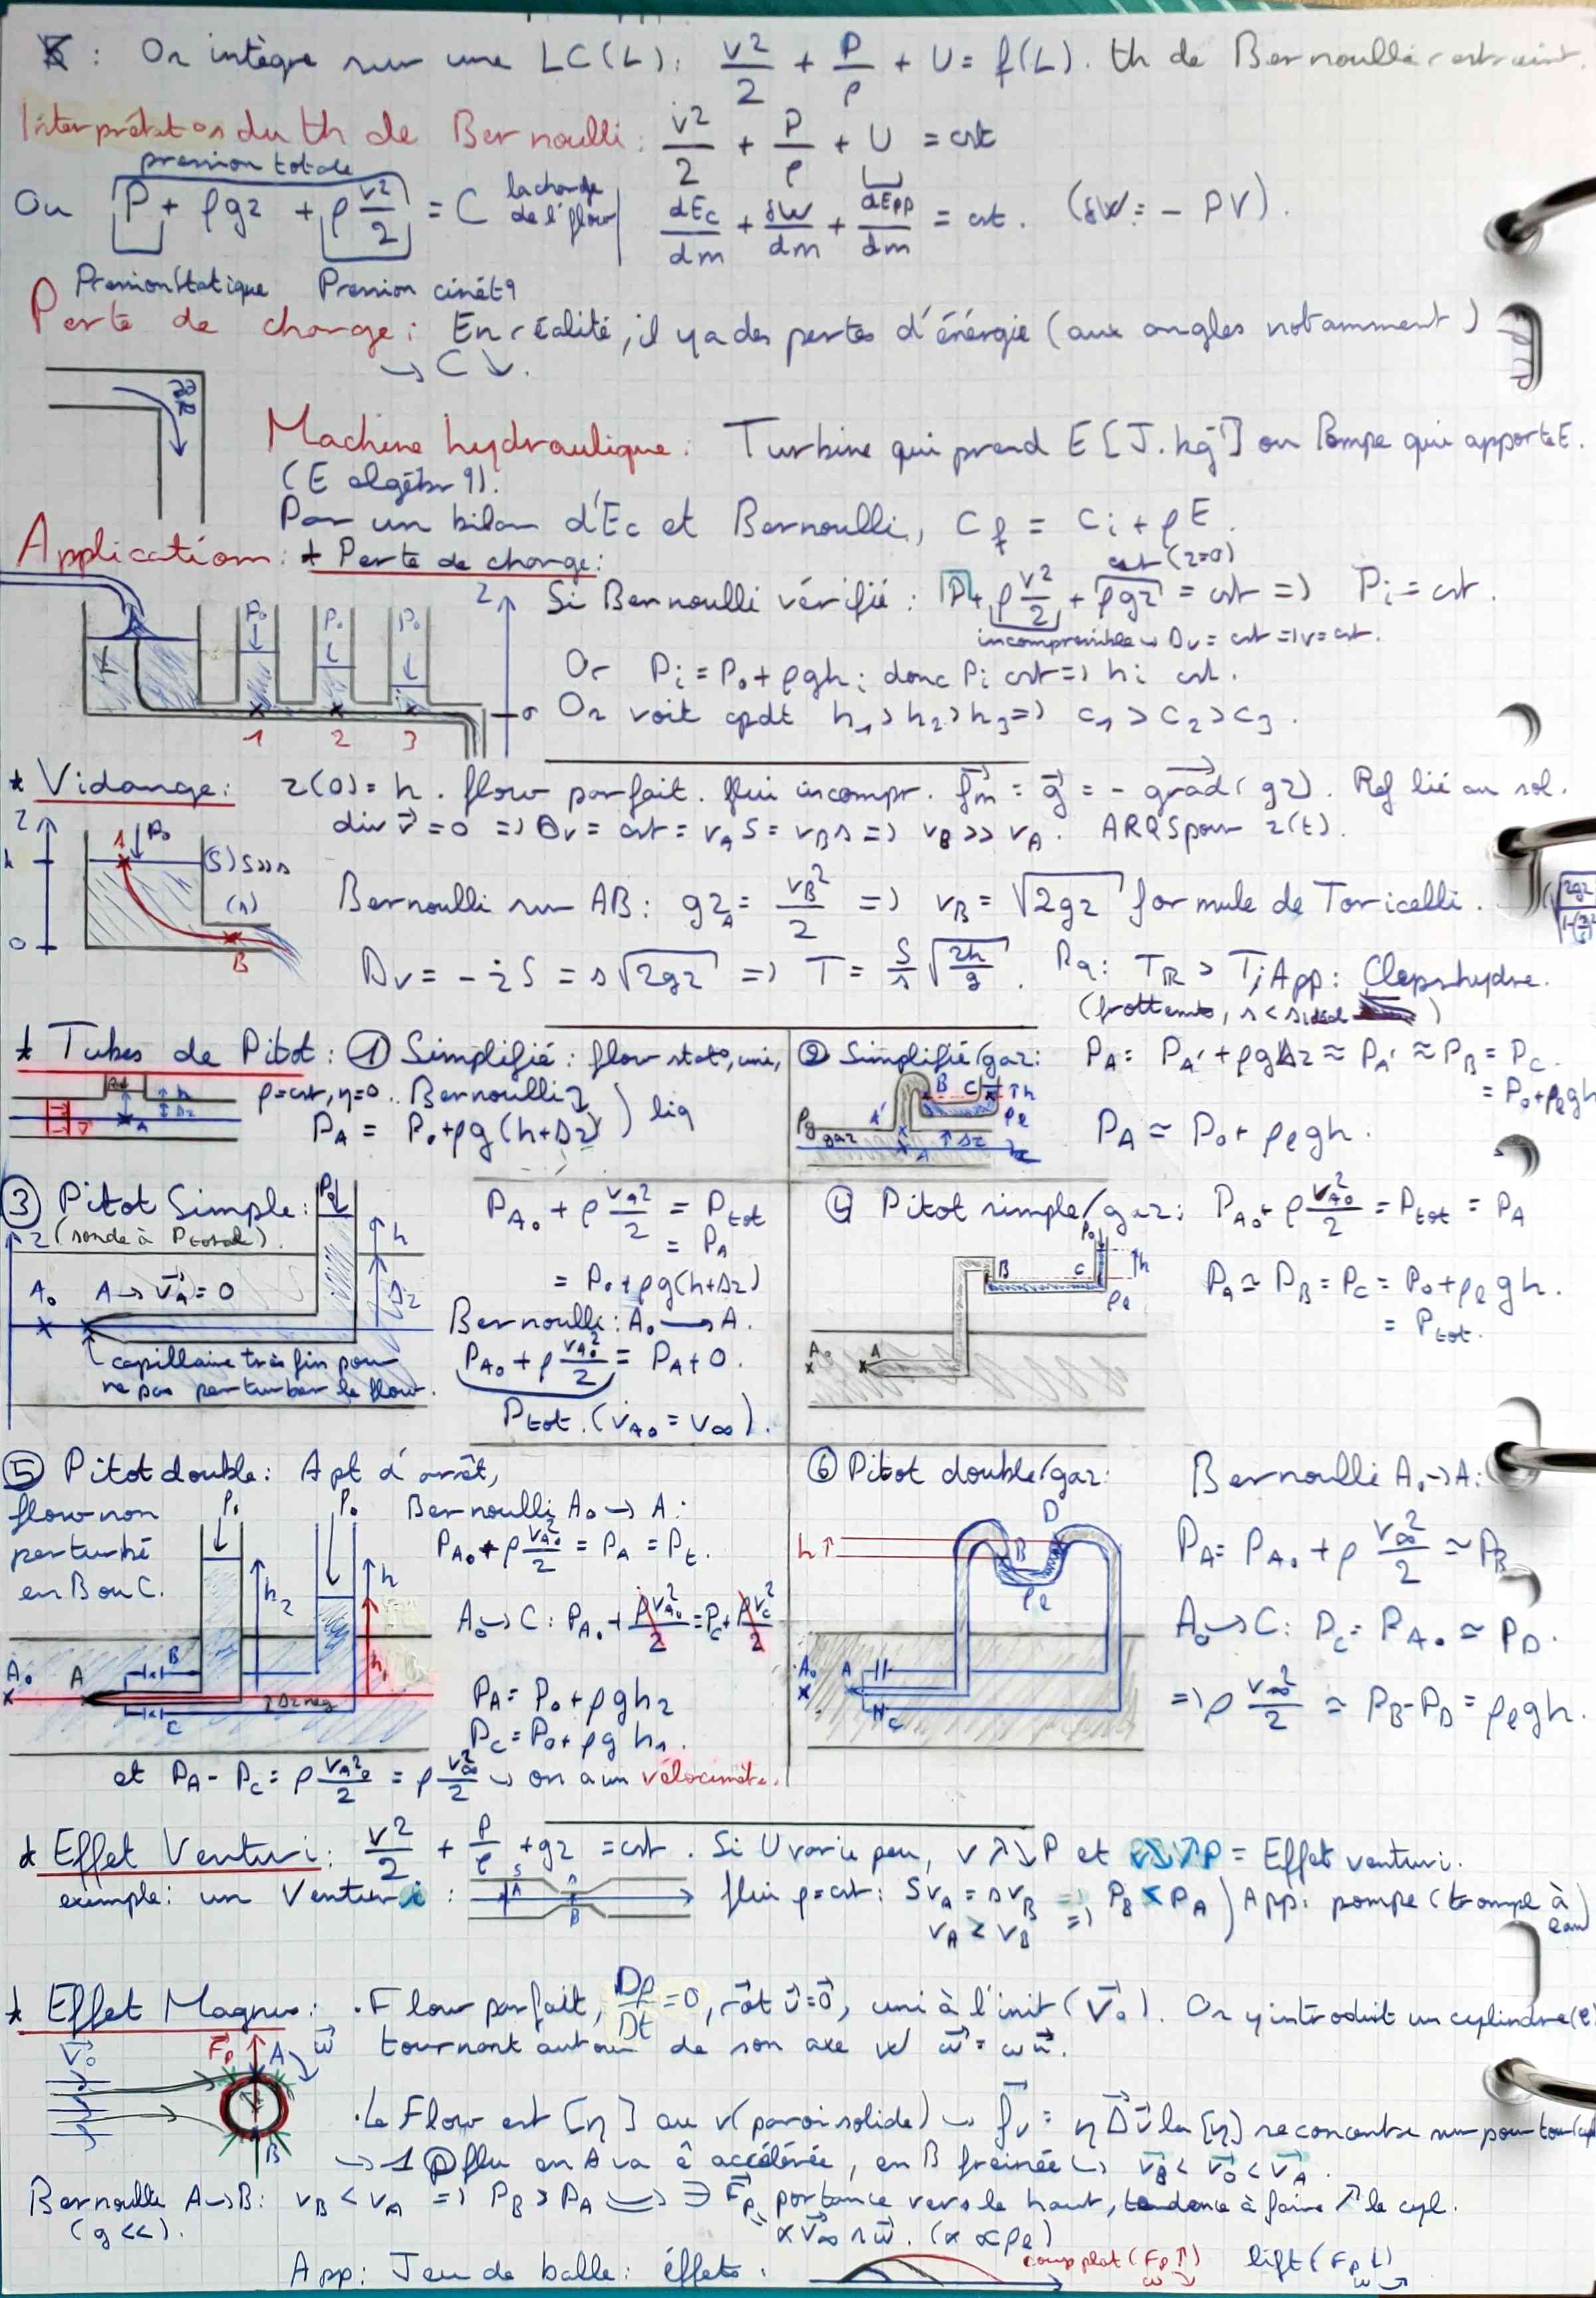 : On intègre sur une LC(L): v²/2 + P/ρ + U = f(L). th de Bernoulli restreint.
Interprétat°s du th de Bernoulli: v²/2 + P/ρ + U = cst
pression totale
Ou P + ρgz + ρ v²/2 = C la charge de l'flow | dEc/dm + δW/dm + dEpp/dm = cst. (δW = - PV).
Pression statique Pression cinétq
Perte de charge: En réalité, il y a des pertes d'énérgie (aux angles notamment)
→ C ↘.
Machine hydraulique: Turbine qui prend E [J.kg⁻¹] ou Pompe qui apporte E.
(E algébrq).
Par un bilan d'Ec et Bernoulli, Cf = Ci + ρE.
Application: * Perte de charge:
cst (z=0)
Si Bernoulli vérifié: P + ρ v²/2 + ρgz = cst => Pi = cst.
incompressible → Dv = cst => v = cst.
P₀ P₀ P₀ z
Or Pi = P₀ + ρgh; donc Pi cst => hi cst.
0 On voit cpdt h₁ > h₂ > h₃ => C₁ > C₂ > C₃.
1 2 3
* Vidange: z(0) = h. flow parfait. flui incompr. fm = g = - grad(gz). Ref lié au sol.
div v = 0 => Dv = cst = vA S = vB s => vB >> vA. ARQS pour z(t).
z 1 P₀ (S) S>>s (s) 0 B
Bernoulli sur AB: gzA = vB²/2 => vB = √2gz formule de Toricelli.
Dv = - ż S = s √2gz => T = S/s √2h/g. Rq: TR > T; App: Clepshydre.
(frottemts, s < sideal)
* Tubes de Pitot: ① Simplifié: flow stat°, uni,
ρ = cst, η = 0. Bernoulli
PA = P₀ + ρg(h + Δz) ) liq
② Simplifié/gaz: PA = PA' + ρgΔz ≈ PA' ≈ PB = PC
= P₀ + ρℓgh
B C h ρℓ A' ρg gaz A Δz
PA ≈ P₀ + ρℓgh.
③ Pitot Simple: P₀
z (sonde à Ptotale). h
A₀ A → vA = 0 Δz
capillaire très fin pour
ne pas perturber le flow.
PA₀ + ρ vA₀²/2 = Ptot
= PA
= P₀ + ρg(h + Δz)
Bernoulli: A₀ → A.
PA₀ + ρ vA₀²/2 = PA + 0.
Ptot. (vA₀ = v∞).
④ Pitot simple/gaz: PA₀ + ρ vA₀²/2 = Ptot = PA
P₀ B C h ρℓ
PA ≈ PB = PC = P₀ + ρℓgh.
= Ptot.
A₀ A
⑤ Pitot double: A pt d'arrêt,
flow non
perturbé
en B ou C.
P₀ P₀ h₂ h h₁
A₀ A B C Δz neg
Bernoulli A₀ → A:
PA₀ + ρ vA₀²/2 = PA = Pt.
A₀ → C: PA₀ + ρvA₀²/2 = PC + ρvC²/2
PA = P₀ + ρgh₂
PC = P₀ + ρgh₁.
et PA - PC = ρ vA₀²/2 = ρ v∞²/2 → on a un vélocimètre.
⑥ Pitot double/gaz: Bernoulli A₀ → A:
h D B ρℓ
A₀ A C
PA = PA₀ + ρ v∞²/2 ≈ PB
A₀ → C: PC = PA₀ ≈ PD.
=> ρ v∞²/2 ≈ PB - PD = ρℓgh.
* Effet Venturi: v²/2 + P/ρ + gz = cst. Si U varie peu, v↗↘P et v↘↗P = Effet venturi.
exemple: un Venturi: S A s B flui ρ = cst: S vA = s vB => PB < PA ) App: pompe (trompe à eau)
vA < vB =>
* Effet Magnus: . Flow parfait, Dρ/Dt = 0, rot v = 0, uni à l'init (V₀). On y introduit un cylindre
V₀ Fp A ω B
tournant autour de son axe ω = ωu.
. Le Flow est [η] au v(paroi solide) → fv = ηΔv la [η] se concentre sur pourtour
→ 1 flu en A va ê accélérée, en B freinée → vB < V₀ < vA.
Bernoulli A → B: vB < vA => PB > PA => ∃ Fp portance vers le haut, tendance à faire ↗ le cyl.
(g <<).
αV∞ ∧ ω. (α ∝ ρℓ)
App: Jeu de balle: éffets. coup plat (Fp↑) ω lift (Fp↓) ω